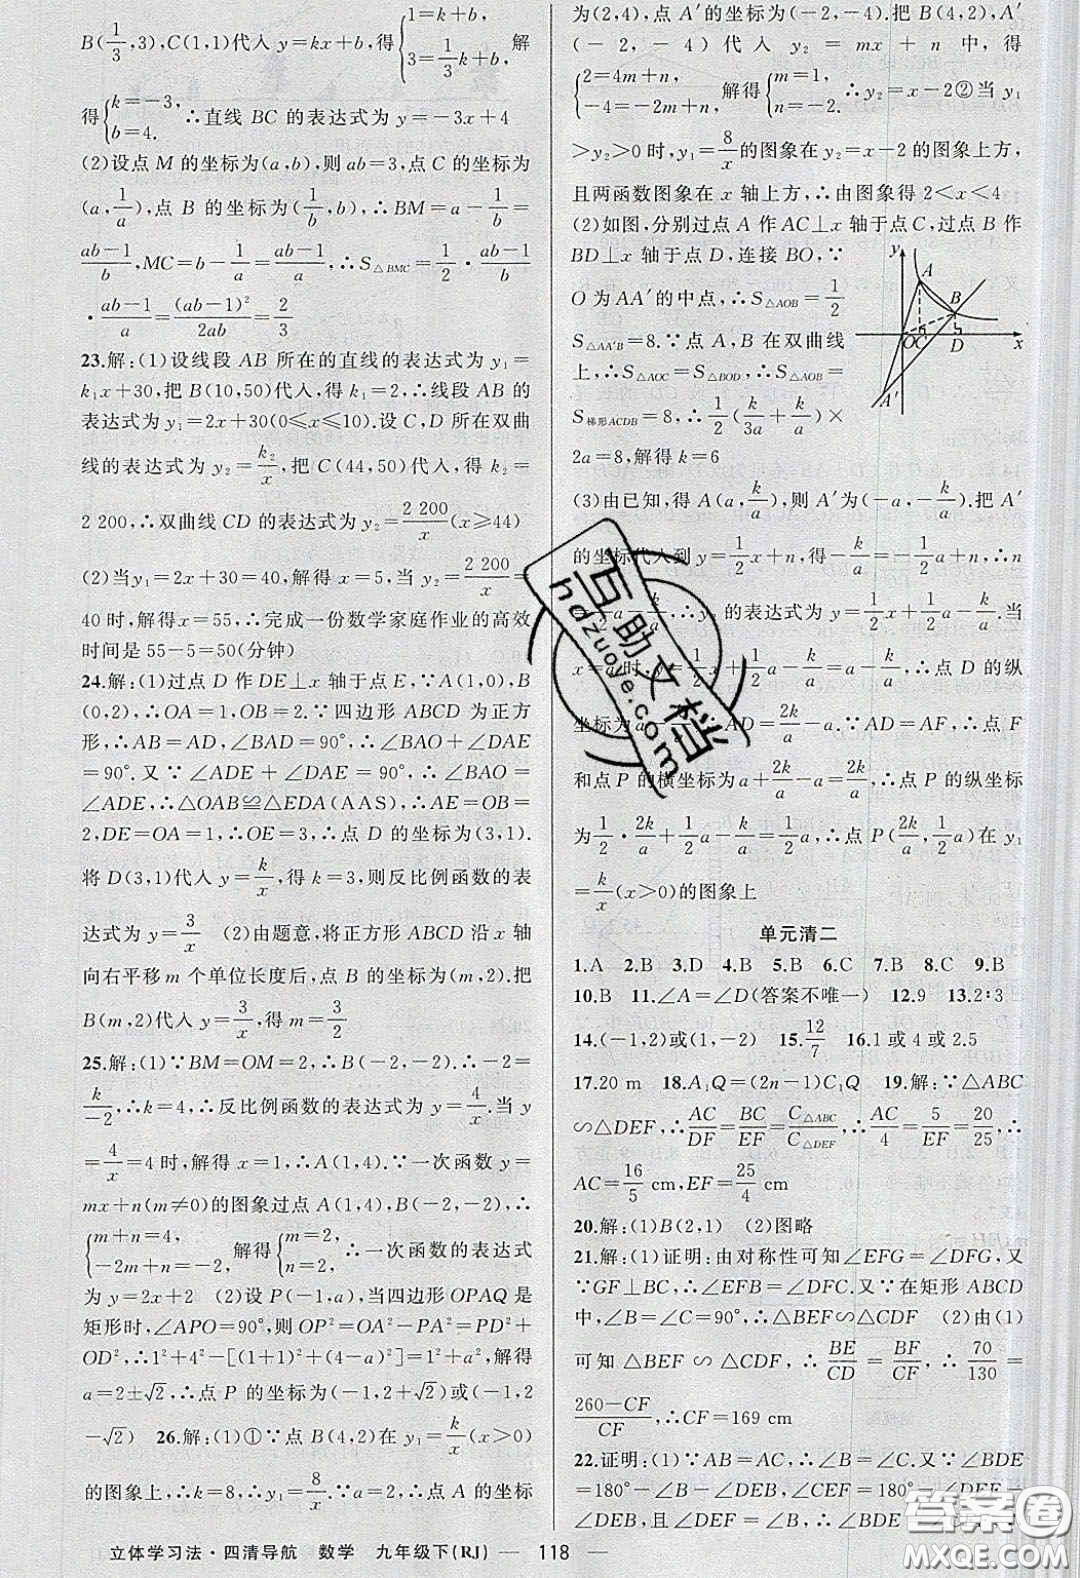 B(1/3,3),C(1,1)代入 y=kx+b,得{1=k+b, 3=1/3k+b, 解
得{k=-3, b=4. ∴直线 BC 的表达式为 y=-3x+4
(2)设点 M 的坐标为(a,b),则ab=3,点 C 的坐标为
(a,1/a),点 B 的坐标为(1/b,b),∴BM=a-1/b=
(ab-1)/b,MC=b-1/a=(ab-1)/a,∴S△BMC=1/2·(ab-1)/b
·(ab-1)/a=(ab-1)²/2ab=2/3
23.解:(1)设线段 AB 所在的直线的表达式为 y₁=
k₁x+30,把 B(10,50)代入,得 k₁=2,∴线段 AB 的
表达式为 y₁=2x+30(0≤x≤10).设 C,D 所在双曲
线的表达式为 y₂=k₂/x,把 C(44,50)代入,得 k₂=
2 200,∴双曲线 CD 的表达式为 y₂=2 200/x(x≥44)
(2)当y₁=2x+30=40,解得 x=5,当 y₂=2 200/x=
40 时,解得x=55,∴完成一份数学家庭作业的高效
时间是 55-5=50(分钟)
24.解:(1)过点 D 作 DE⊥x 轴于点 E,∵A(1,0),B
(0,2),∴OA=1,OB=2.∵四边形 ABCD 为正方
形,∴AB=AD,∠BAD=90°,∴∠BAO+∠DAE
=90°.又∵∠ADE+∠DAE=90°,∴∠BAO=
∠ADE,∴△OAB≌△EDA(AAS),∴AE=OB=
2,DE=OA=1,∴OE=3,∴点 D 的坐标为(3,1).
将 D(3,1)代入 y=k/x,得 k=3,则反比例函数的表
达式为 y=3/x (2)由题意,将正方形 ABCD 沿 x 轴
向右平移 m 个单位长度后,点 B 的坐标为(m,2).把
B(m,2)代入 y=3/x,得 m=3/2
25.解:(1)∵BM=OM=2,∴B(-2,-2).∴-2=
k/-2,∴k=4,∴反比例函数的表达式为 y=4/x.当 y
=4/x=4 时,解得 x=1,∴A(1,4).∵一次函数 y=
mx+n(m≠0)的图象过点 A(1,4),B(-2,-2),∴
{m+n=4, -2m+n=-2, 解得{m=2, n=2. ∴一次函数的表达式
为 y=2x+2 (2)设 P(-1,a),当四边形 OPAQ 是
矩形时,∠APO=90°,则 OP²=OA²-PA²=PD²+
OD²,∴1²+4²-[(1+1)²+(4-a)²]=1²+a²,解得
a=2±√2,∴点 P 的坐标为(-1,2+√2)或(-1,2
-√2) 26.解:(1)①∵点 B(4,2)在 y₁=k/x(x>0)
的图象上,∴k=8,∴y₁=8/x.∵a=2,∴点 A 的坐标
为(2,4),点 A′的坐标为(-2,-4).把 B(4,2),A′
(-2,-4)代入 y₂=mx+n 中,得
{2=4m+n, -4=-2m+n, 解得{m=1, n=-2. ∴y₂=x-2②当 y₁
>y₂>0 时,y₁=8/x的图象在 y₂=x-2 的图象上方,
且两函数图象在 x 轴上方,∴由图象得 2<x<4
(2)如图,分别过点 A 作 AC⊥x 轴于点C,过点 B 作
BD⊥x 轴于点D,连接 BO,∵
O 为AA′的中点,∴S△AOB=1/2
S△AA′B=8.∵点 A,B 在双曲线
上,∴S△AOC=S△BOD,∴S△AOB=
S梯形ACDB=8,∴1/2(k/3a+k/a)×
2a=8,解得 k=6
y
A
B
O
C
D
x
A′
(3)由已知,得 A(a,k/a),则 A′为(-a,-k/a).把 A′
的坐标代入到 y=1/2x+n,得-k/a=-1/2a+n,∴n
=1/2a-k/a,∴y₂的表达式为 y=1/2x+1/2a-k/a.当
x=a时,y=1/2a+1/2a-k/a=a-k/a,∴点 D 的纵
坐标为a-k/a,∴AD=2k/a-a.∵AD=AF,∴点 F
和点 P 的横坐标为a+2k/a-a=2k/a,∴点 P 的纵坐标
为1/2·2k/a+1/2a-k/a=1/2a,∴点 P(2k/a,1/2a)在 y₁
=k/x(x>0)的图象上
单元清二
1.A 2.B 3.D 4.B 5.B 6.C 7.B 8.C 9.B
10.B 11.∠A=∠D(答案不唯一) 12.9 13.2∶3
14.(-1,2)或(1,-2) 15.12/7 16.1 或 4 或 2.5
17.20 m 18.A₁Q=(2n-1)C₁Q 19.解:∵△ABC
∽△DEF,∴AC/DF=BC/EF=C△ABC/C△DEF,∴AC/4=5/EF=20/25,∴
AC=16/5 cm,EF=25/4 cm
20.解:(1)B(2,1) (2)图略
21.解:(1)证明:由对称性可知∠EFG=∠DFG,又
∵GF⊥BC,∴∠EFB=∠DFC.又∵在矩形 ABCD
中,∠B=∠C=90°,∴△BEF∽△CDF (2)由(1)
可知△BEF∽△CDF,∴BE/CD=BF/CF,∴70/130=
(260-CF)/CF,∴CF=169 cm
22.证明:(1)∵AB=AC,∴∠B=∠C.又∵∠BDE
=180°-∠B-∠DEB,∠CEF=180°-∠DEF-
∠DEB,
立体学习法·四清导航 数学 九年级下(RJ) — 118 —
互助文档
hdzuoye.com
答案圈
MXQE.COM